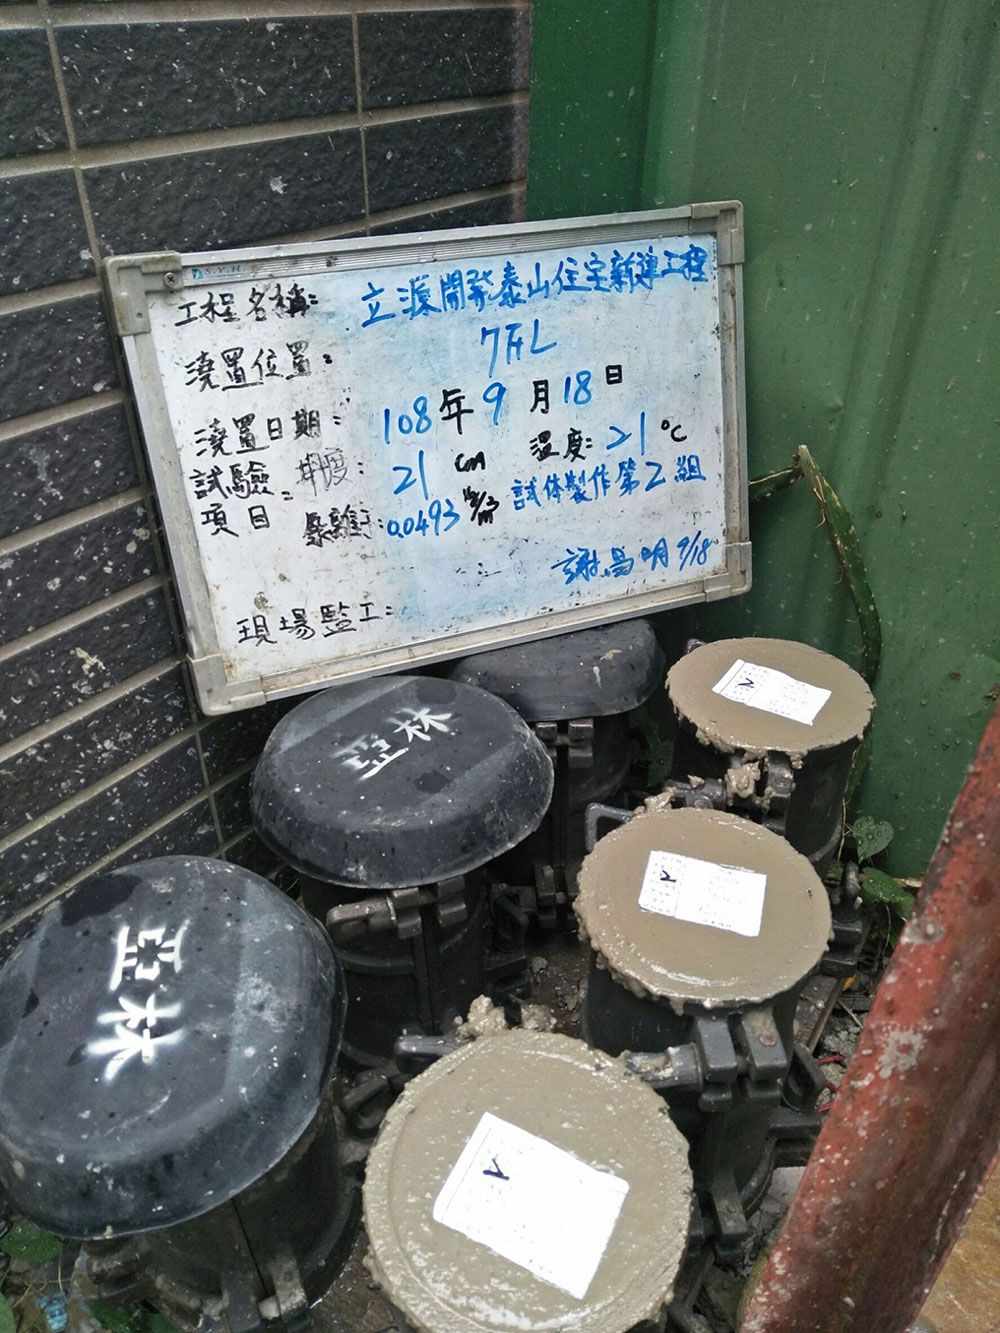 工程名稱: 立源開發泰山住宅新建工程
澆置位置: 7FL
澆置日期: 108年9月18日
試驗項目 坍度: 21 cm 溫度: 21 °C
氯離子: 0.0493 kg/m³ 試体製作第2組
謝昌明 9/18
現場監工:
亞林
亞林